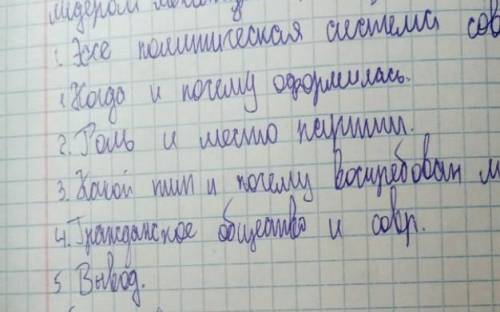 лидером
1. Же политическая система сов
1. Когда и почему оформилась.
2. Роль и место партии.
3. Какой тип и почему востребован м
4. Гражданское общество и совр.
5. Вывод.